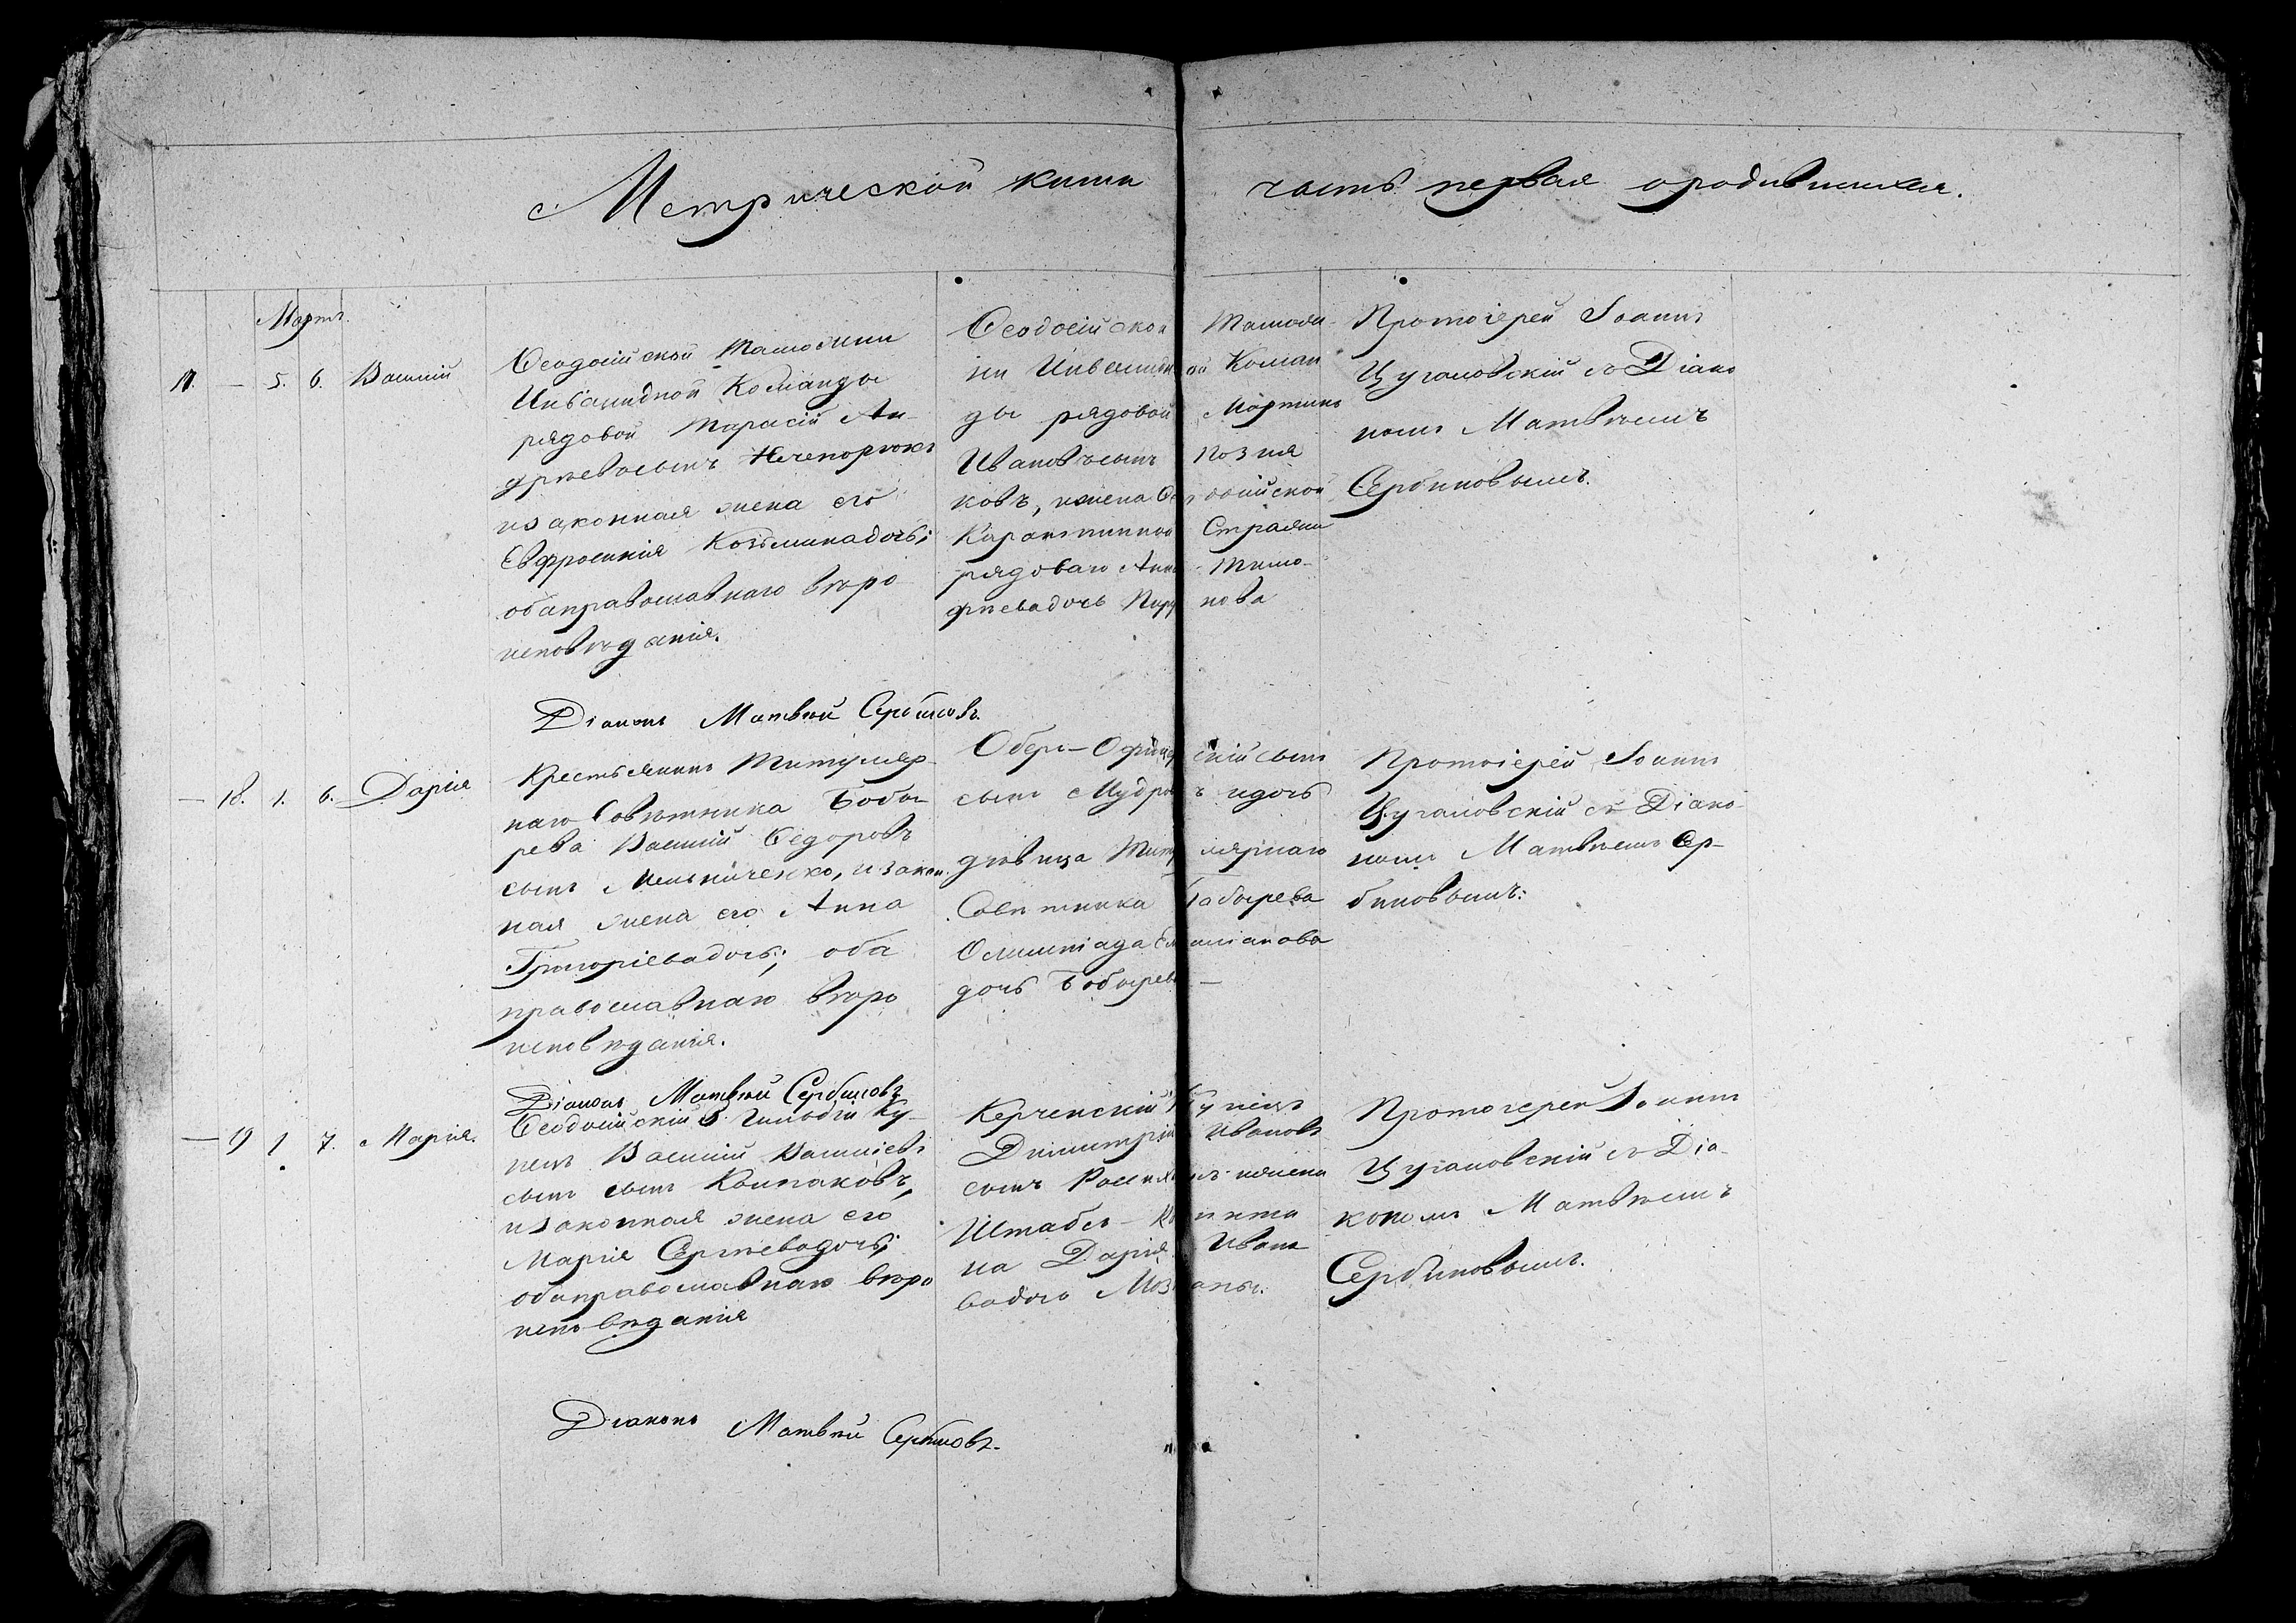 Метрической книги часть первая о родившихся.
Мартъ.
5. 6. Василій
Ѳеодосійской Таможенни
Инвалидной Команды
рядовой Тарасій Ан-
дреевъ сынъ Нечепорюкъ
и законная жена его
Евфросинія Козьмина дочь;
оба православнаго вѣро
исповѣданія.
Ѳеодосійской Таможен-
ни Инвалидной Коман
ды рядовой Мартинъ
Ивановъ сынъ Позня
ковъ, и жена Ѳеодосійской
Карантинной Стражи
рядоваго Анна Тимо-
фѣева дочь
Протоіерей Іоаннъ
Цугановскій съ Діако
номъ Матвѣемъ
Сербиновымъ.
Діаконъ Матвѣй Сербиновъ.
— 18. 1. 6. Дарія
Крестьянинъ Титуляр-
наго Совѣтника Бобы-
рева Василій Ѳедоровъ
сынъ Мельниченко, и закон.
ная жена его Анна
Григоріева дочь; оба
православнаго вѣро
исповѣданія.
Обер-Офицерскій сынъ
сынъ Мудровъ и дочь
дѣвица Титулярнаго
Совѣтника Бобырева
Олимпіада Емиліанова
дочь Бобырева —
Протоіерей Іоаннъ
Цугановскій съ Діако-
номъ Матвѣемъ Сер-
биновымъ:
Діаконъ Матвѣй Сербиновъ
— 19 1 7. Марія.
Ѳеодосійскій 3. Гильдіи Ку-
пецъ Василій Васильевъ
сынъ сынъ Колпаковъ,
и законная жена его
Марія Сергѣева дочь;
оба православнаго вѣро
исповѣданія
Керченскій Купецъ
Димитрій Ивановъ
сынъ и жена
Штабсъ-Капита
на Дарія Ивано
ва дочь
Протоіерей Іоаннъ
Цугановскій съ Діа-
кономъ Матвѣемъ
Сербиновымъ.
Діаконъ Матвѣй Сербиновъ.